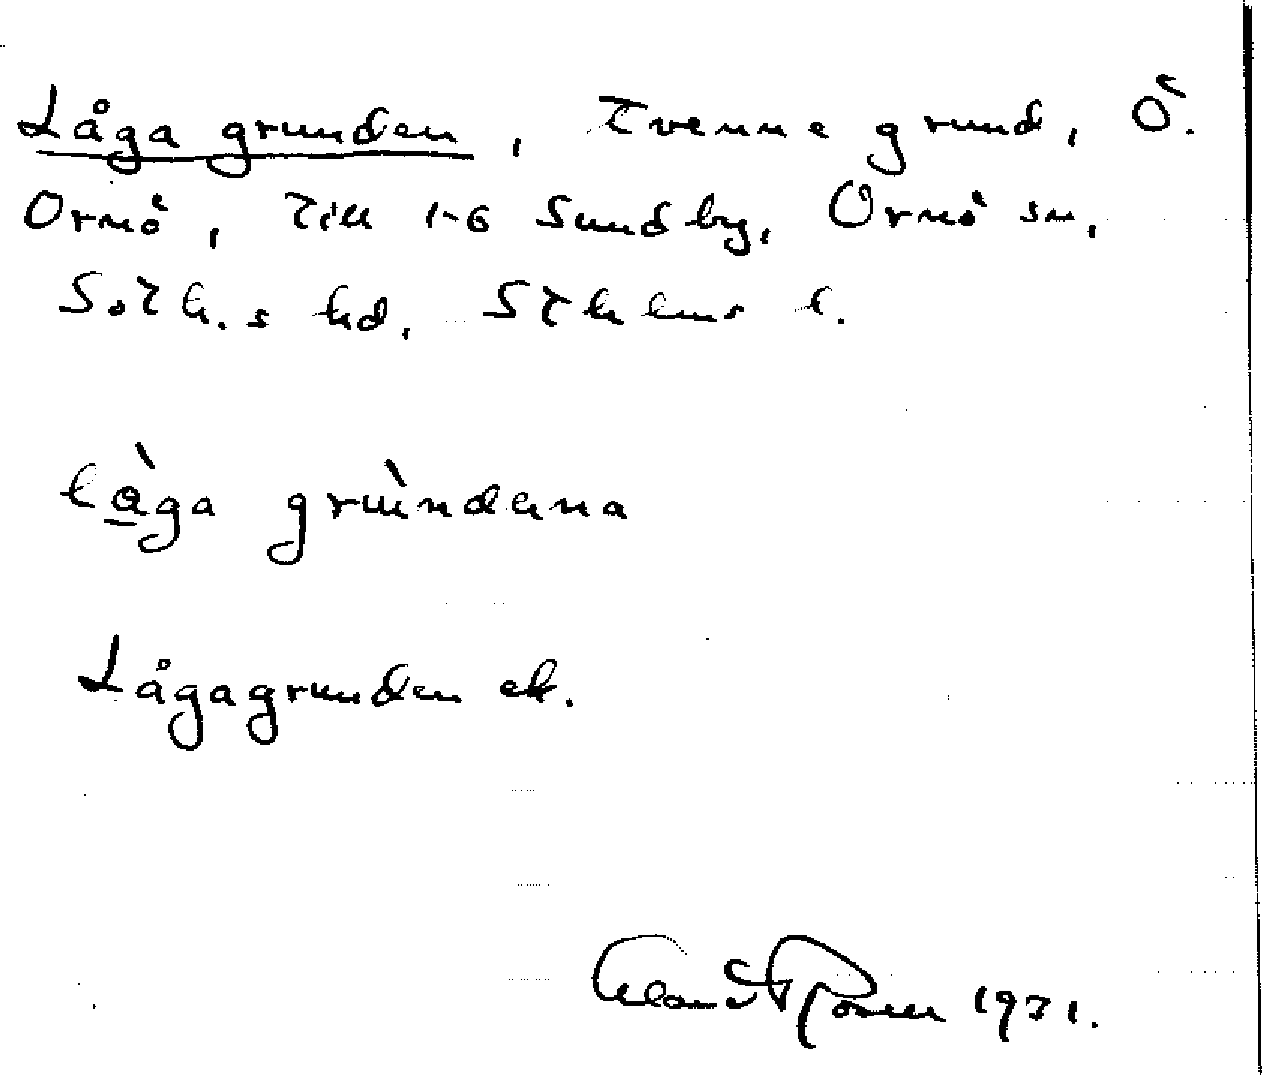 Låga grunden, Tvenne grund, Ö.
Ornö, Till 1-6 Sundby, Ornö sn,
Soth.s hd, Sthlms l.
làga grùndena
Lågagrunden ek.
1931.